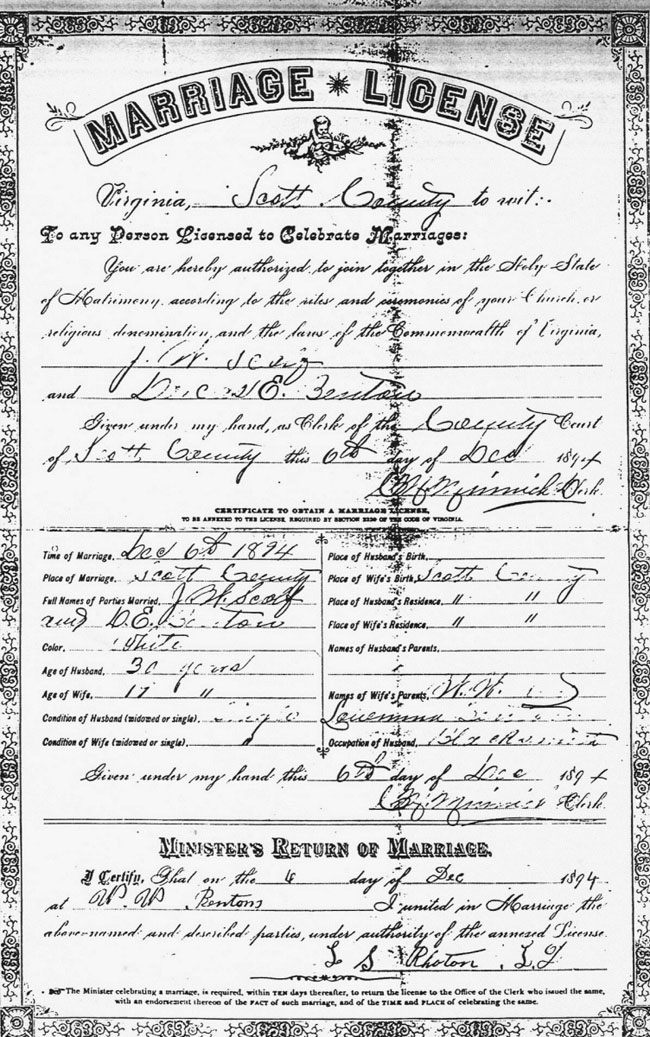 MARRIAGE LICENSE
Virginia, Scott County to wit:
To any Person Licensed to Celebrate Marriages:
You are hereby authorized to join together in the Holy State
of Matrimony, according to the rites and ceremonies of your Church or
religious denomination, and the laws of the Commonwealth of Virginia,
J. W.
and E. Benton
Given under my hand, as Clerk of the County Court
of Scott County this 6th day of Dec 1894
Minnick Clerk.
CERTIFICATE TO OBTAIN A MARRIAGE LICENSE,
TO BE ANNEXED TO THE LICENSE, REQUIRED BY SECTION 2229 OF THE CODE OF VIRGINIA.
Time of Marriage, Dec 6th 1894
Place of Marriage, Scott County
Full Names of Parties Married, J. W. Scalf
and D.E.
Color, White
Age of Husband, 30 years
Age of Wife, 17 "
Condition of Husband (widowed or single), Single
Condition of Wife (widowed or single), "
Place of Husband's Birth,
Place of Wife's Birth, Scott County
Place of Husband's Residence, " "
Place of Wife's Residence, " "
Names of Husband's Parents,
Names of Wife's Parents, W. W.
Louemma
Occupation of Husband, Blacksmith
Given under my hand this 6th day of Dec 1894
Minnick Clerk.
MINISTER'S RETURN OF MARRIAGE.
I Certify, That on the 6 day of Dec 1894
at W. W. Bentons I united in Marriage the
above-named and described parties, under authority of the annexed License.
L S Rhoton
The Minister celebrating a marriage, is required, within TEN days thereafter, to return the license to the Office of the Clerk who issued the same,
with an endorsement thereon of the FACT of such marriage, and of the TIME and PLACE of celebrating the same.